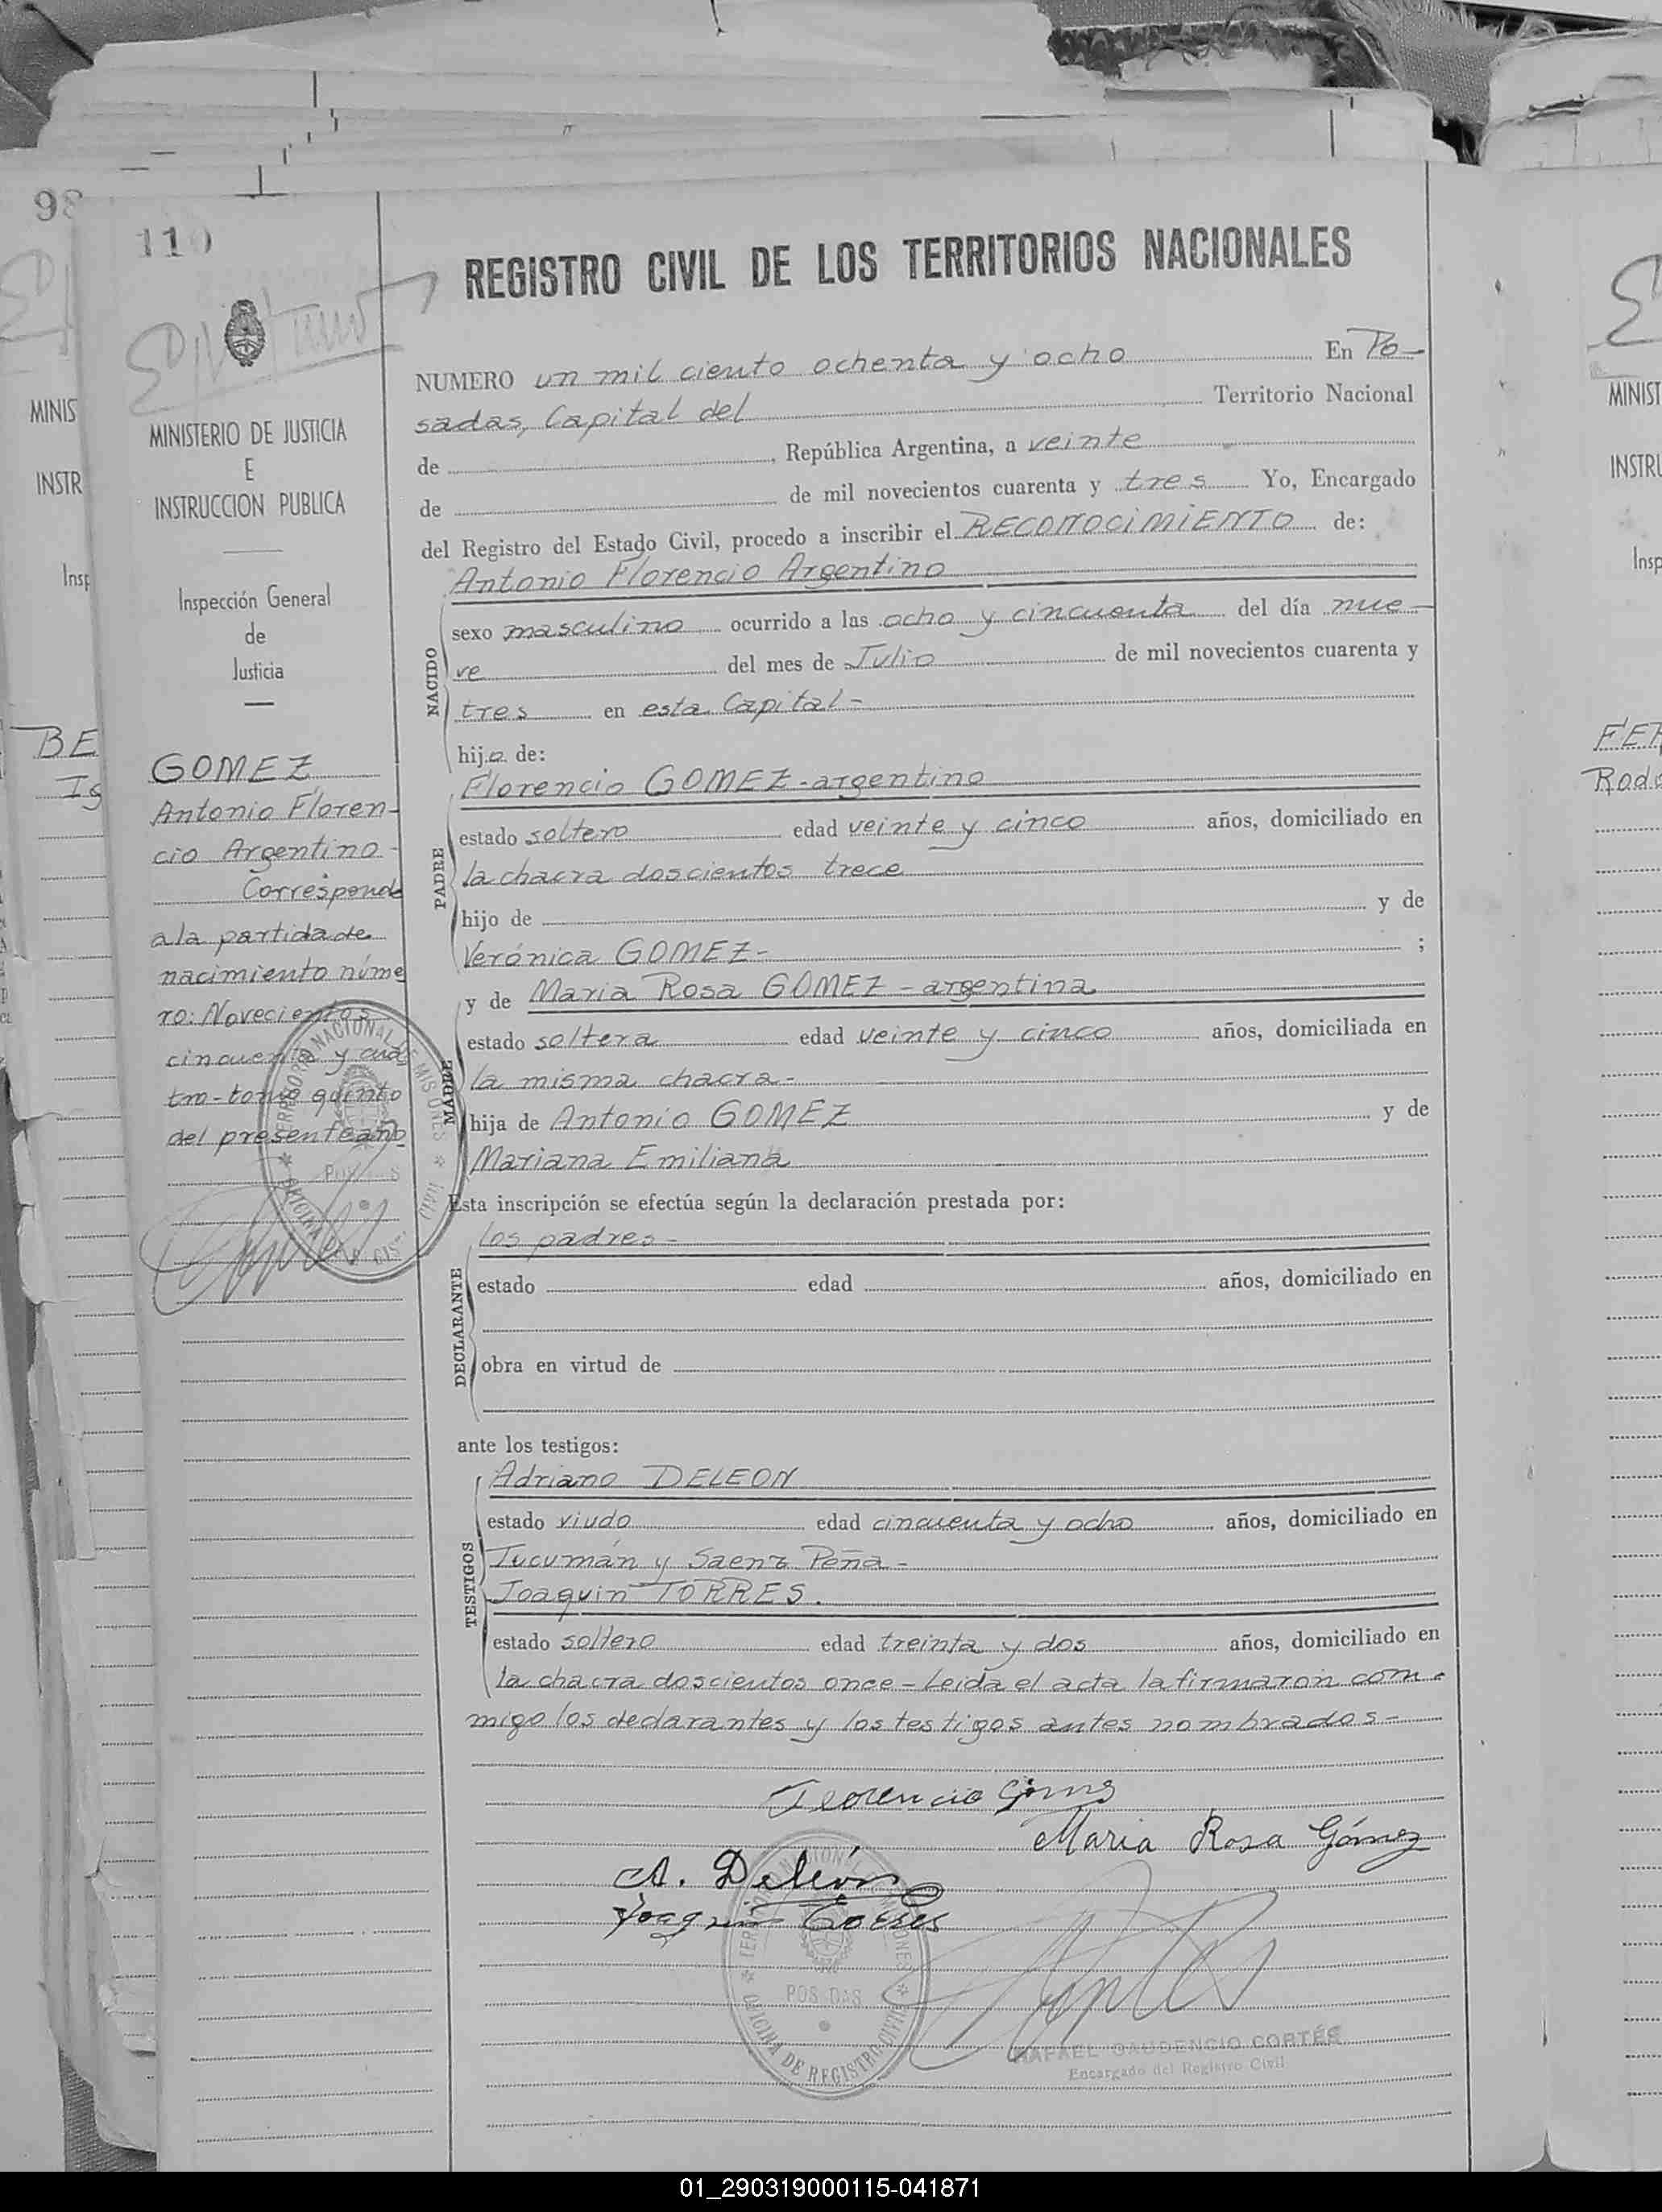 98
110
REGISTRO CIVIL DE LOS TERRITORIOS NACIONALES
MINISTERIO DE JUSTICIA
E
INSTRUCCION PUBLICA
Inspección General
de
Justicia
GOMEZ
Antonio Floren-
cio Argentino-
Corresponde
a la partida de
nacimiento núme
ro: Novecientos
cincuenta y cua
tro-tomo quinto
del presente año
NUMERO un mil ciento ochenta y ocho En Po-
sadas, Capital del Territorio Nacional
de , República Argentina, a veinte
de de mil novecientos cuarenta y tres Yo, Encargado
del Registro del Estado Civil, procedo a inscribir el RECONOCIMIENTO de:
NACIDO
Antonio Florencio Argentino
sexo masculino ocurrido a las ocho y cincuenta del día nue-
ve del mes de Julio de mil novecientos cuarenta y
tres en esta Capital-
hijo de:
PADRE
Florencio GOMEZ-argentino
estado soltero edad veinte y cinco años, domiciliado en
la chacra doscientos trece
hijo de y de
Verónica GOMEZ- ;
MADRE
y de Maria Rosa GOMEZ - argentina
estado soltera edad veinte y cinco años, domiciliada en
la misma chacra-
hija de Antonio GOMEZ y de
Mariana Emiliana
Esta inscripción se efectúa según la declaración prestada por:
DECLARANTE
los padres-
estado edad años, domiciliado en
obra en virtud de
ante los testigos:
TESTIGOS
Adriano DELEON
estado viudo edad cincuenta y ocho años, domiciliado en
Tucumán y Saenz Peña-
Joaquin TORRES.
estado soltero edad treinta y dos años, domiciliado en
la chacra doscientos once-Leida el acta la firmaron con-
migo los declarantes y los testigos antes nombrados-
Florencio Gómez
Maria Rosa Gómez
A. Deleón
Joaquin Torres
TERRITORIO NACIONAL DE MISIONES
POSADAS
OFICINA DE REGISTRO CIVIL
RAFAEL GAUDENCIO CORTÉS
Encargado del Registro Civil
MINIS
INSTR
Insp
BE
Ig
MINIST
INSTRU
Insp
FER
Rod
01_290319000115-041871